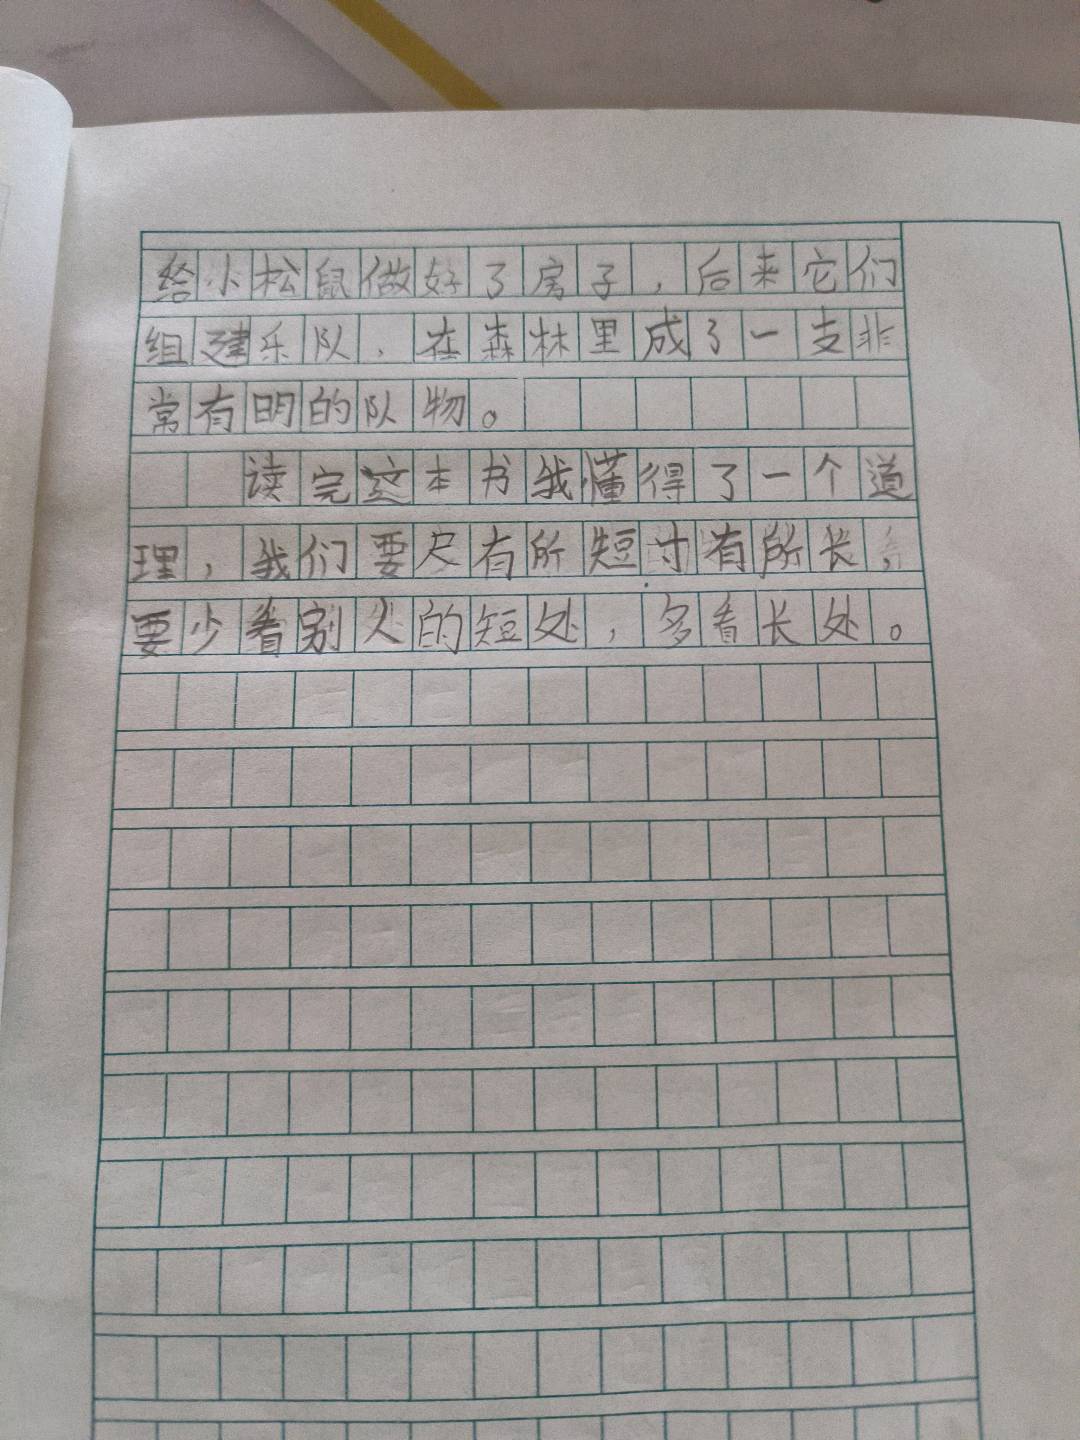 给小松鼠做好了房子,后来它们
组建乐队,在森林里成了一支非
常有明的队物。
读完这本书我懂得了一个道
理,我们要尺有所短寸有所长,
要少看别人的短处,多看长处。